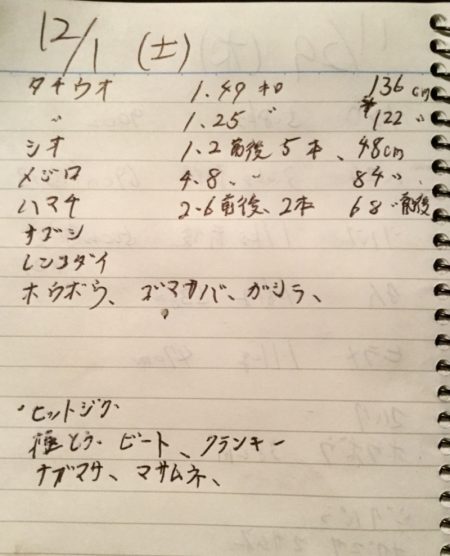 12/1 (土)
タチウオ 1.49キロ 136cm
〃 1.25〃 122〃
シオ 1.2前後5本、48cm
メジロ 4.8〃 84〃
ハマチ 2.6前後、2本 68〃前後
オズシ
レンコダイ
ホウボウ、ゴマサバ、ガシラ、
・ヒットジグ
極とう・ビート、クランキー
ナブマサ、マサムネ、